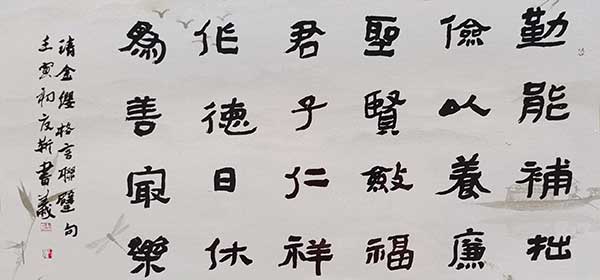 勤能補拙
儉以養廉
聖賢斂福
君子仁祥
作德日休
為善冣樂
清金纓格言聯璧句
壬寅初